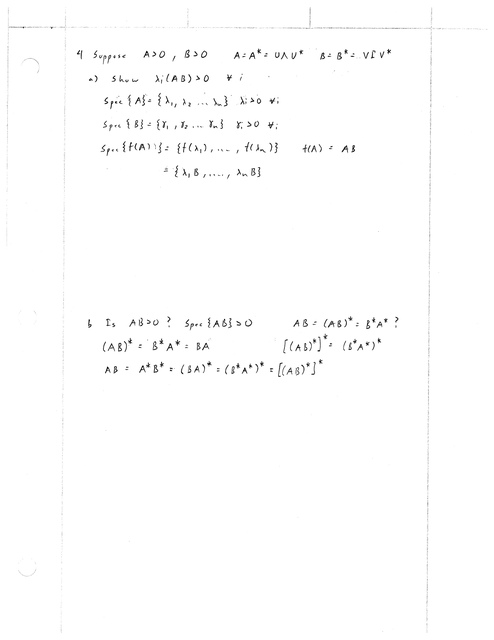 4 Suppose A>0 , B>0 A=A*= UΛU* B=B*= VΓV*
a) Show λi(AB)>0 ∀ i
Spec{A}= {λ1, λ2 ... λn} λi>0 ∀i
Spec{B}= {γ1, γ2 ... γn} γi>0 ∀i
Spec{f(A)}= {f(λ1), ...., f(λn)} f(A) = AB
= {λ1B, ...., λnB}
b Is AB>0 ? Spec{AB}>0 AB = (AB)* = B*A* ?
(AB)* = B*A* = BA [(AB)*]* = (B*A*)*
AB = A*B* = (BA)* = (B*A*)* = [(AB)*]*